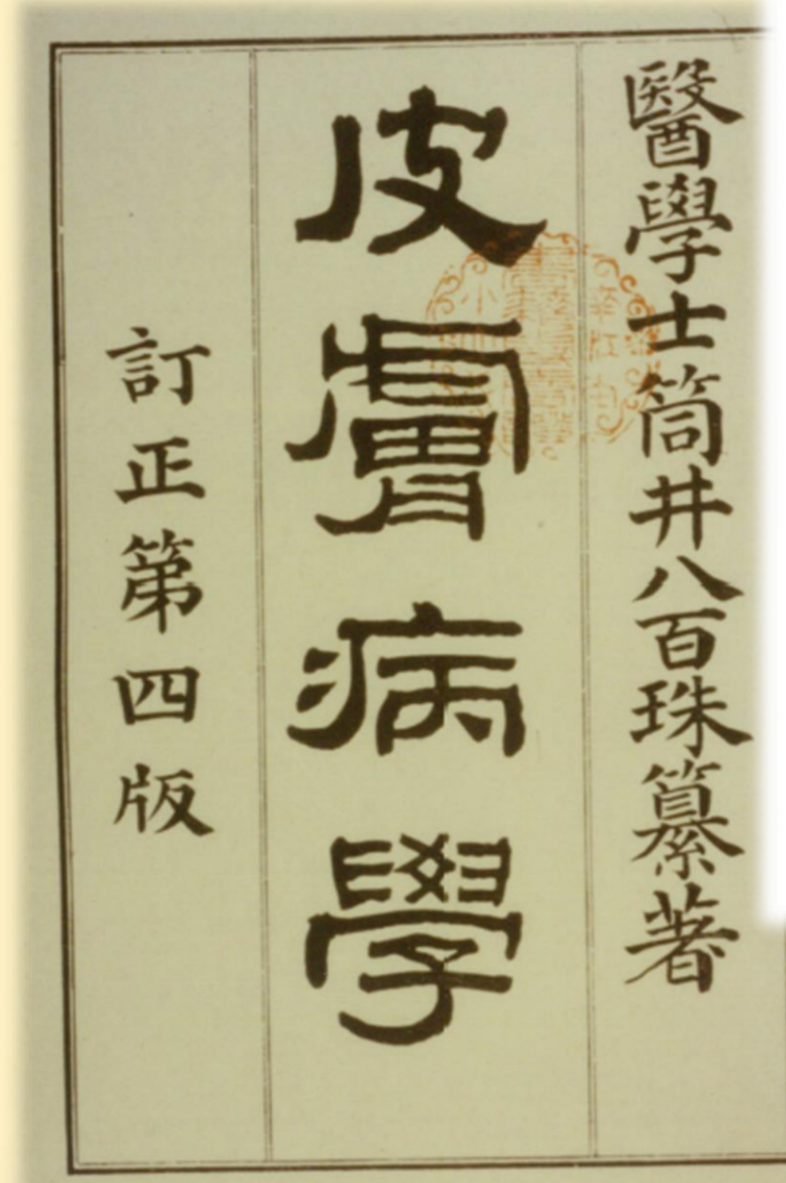 醫學士筒井八百珠纂著
皮膚病學
訂正第四版